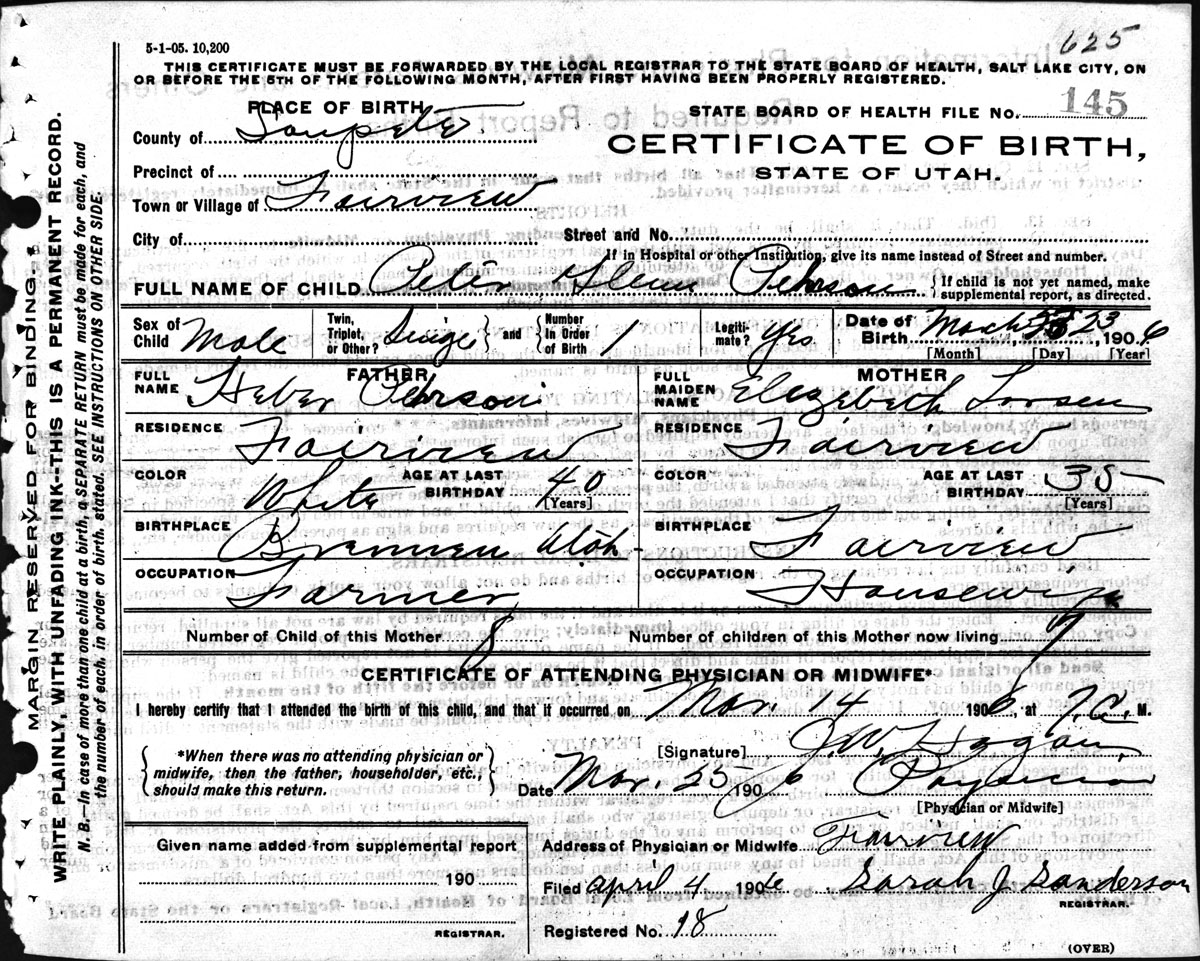 5-1-05. 10,200
625
THIS CERTIFICATE MUST BE FORWARDED BY THE LOCAL REGISTRAR TO THE STATE BOARD OF HEALTH, SALT LAKE CITY, ON
OR BEFORE THE 5TH OF THE FOLLOWING MONTH, AFTER FIRST HAVING BEEN PROPERLY REGISTERED.
MARGIN RESERVED FOR BINDING--
WRITE PLAINLY, WITH UNFADING INK--THIS IS A PERMANENT RECORD.
N. B.—In case of more than one child at a birth, a SEPARATE RETURN must be made for each, and
the number of each, in order of birth, stated. SEE INSTRUCTIONS ON OTHER SIDE.
PLACE OF BIRTH
STATE BOARD OF HEALTH FILE No. 145
County of Sanpete
CERTIFICATE OF BIRTH,
Precinct of
STATE OF UTAH.
Town or Village of Fairview
City of Street and No.
If in Hospital or other Institution, give its name instead of Street and number.
FULL NAME OF CHILD Peter Glenn Pehrson { If child is not yet named, make
supplemental report, as directed.
Sex of Child Male Twin, Triplet, or Other? Single } and { Number In Order of Birth 1 Legiti- mate? Yes Date of Birth March 23, 1906
[Month] [Day] [Year]
FATHER, MOTHER
FULL NAME Heber Pehrson FULL MAIDEN NAME Elizebeth Larsen
RESIDENCE Fairview RESIDENCE Fairview
COLOR White AGE AT LAST BIRTHDAY 40 [Years] COLOR AGE AT LAST BIRTHDAY 35 [Years]
BIRTHPLACE Utah BIRTHPLACE Fairview
OCCUPATION Farmer OCCUPATION Housewife
Number of Child of this Mother 8 Number of children of this Mother now living
CERTIFICATE OF ATTENDING PHYSICIAN OR MIDWIFE*
I hereby certify that I attended the birth of this child, and that it occurred on Mar. 14 1906, at M.
*When there was no attending physician or
midwife, then the father, householder, etc.,
should make this return.
[Signature]
Date Mar. 25 1906 Physician
[Physician or Midwife]
Given name added from supplemental report
190
REGISTRAR.
Address of Physician or Midwife Fairview
Filed April 4 1906 Sarah J Sanderson
REGISTRAR.
Registered No. 18
(OVER)